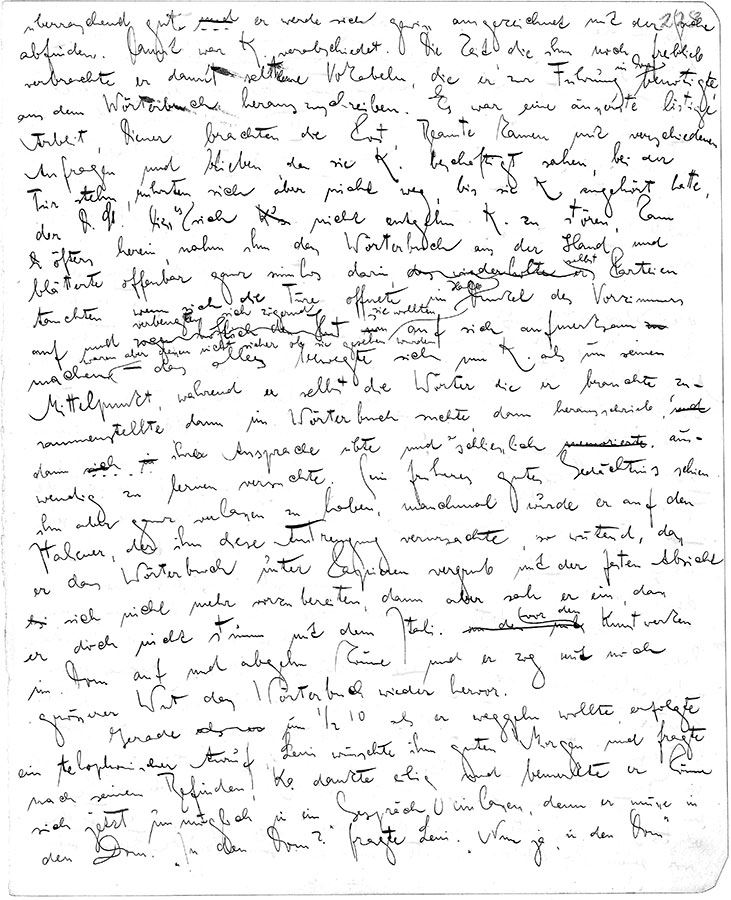 228
überraschend gut und er werde sich gewiss ausgezeichnet mit der Sache
abfinden. Damit war K. verabschiedet. Die Zeit die ihm noch freiblieb
verbrachte er damit seltene Vokabeln, die er zur Führung im Dom benötigte,
aus dem Wörterbuch herauszuschreiben. Es war eine äusserst lästige
Arbeit, Diener brachten die Post, Beamte kamen mit verschiedenen
Anfragen und blieben da sie K. beschäftigt sahen, bei der
Tür stehn, rührten sich aber nicht weg, bis sie K. angehört hatte,
der D. St. liess es sich nicht entgehn K. zu stören, kam
öfters herein, nahm ihm das Wörterbuch aus der Hand und
blätterte offenbar ganz sinnlos darin, selbst Parteien
tauchten wenn sich die Türe öffnete im Halbdunkel des Vorzimmers
auf und verbeugten sich zögernd sie wollten auf sich aufmerksam
machen waren aber dessen nicht sicher ob sie gesehen wurden
das alles bewegte sich um K. als um seinen
Mittelpunkt, während er selbst die Wörter die er brauchte zu-
sammenstellte dann im Wörterbuch suchte dann herausschrieb,
dann sich in ihrer Aussprache übte und schliesslich aus-
wendig zu lernen versuchte. Sein früheres gutes Gedächtnis schien
ihn aber ganz verlassen zu haben, manchmal wurde er auf den
Italiener, der ihm diese Anstrengung verursachte, so wütend, dass
er das Wörterbuch unter Papieren vergrub mit der festen Absicht
sich nicht mehr vorzubereiten, dann aber sah er ein, dass
er doch nicht stumm mit dem Itali. vor den Kunstwerken
im Dom auf und abgehn könne und er zog mit noch
grösserer Wut das Wörterbuch wieder hervor.
Gerade um 1/2 10 als er weggehn wollte, erfolgte
ein telephonischer Anruf, Leni wünschte ihm guten Morgen und fragte
nach seinem Befinden, K. dankte eilig und bemerkte er könne
sich jetzt unmöglich in ein Gespräch einlassen, denn er müsse in
den Dom. "In den Dom?" fragte Leni. "Nun ja, in den Dom"